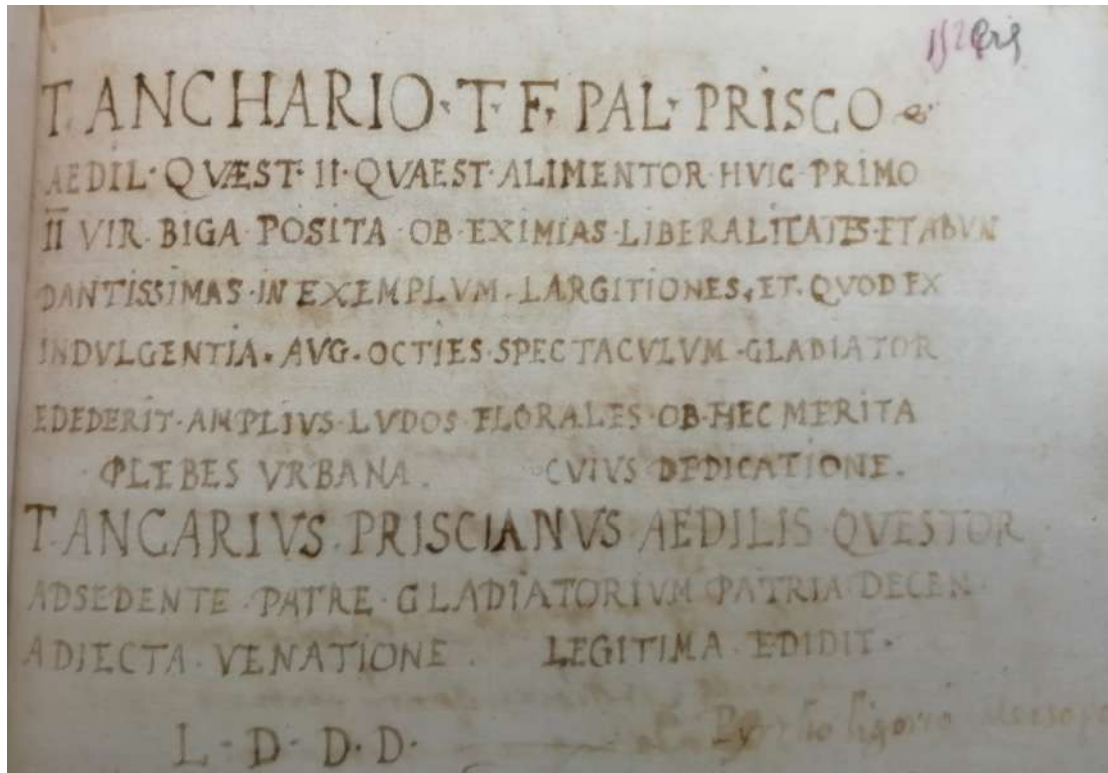 T. ANCHARIO · T · F · PAL · PRISCO
AEDIL · QVÆST · II · QVAEST · ALIMENTOR · HVIC · PRIMO
II VIR · BIGA · POSITA · OB · EXIMIAS · LIBERALITATES · ET ABVN
DANTISSIMAS · IN EXEMPLVM · LARGITIONES · ET · QVOD EX
INDVLGENTIA · AVG · OCTIES · SPECTACVLVM · GLADIATOR
EDEDERIT · AMPLIVS · LVDOS FLORALES · OB · HEC MERITA
PLEBES VRBANA. CVIVS DEDICATIONE.
T · ANCARIVS · PRISCIANVS AEDILIS · QVESTOR
ADSEDENTE · PATRE · GLADIATORIVM PATRIA DECEN ·
ADIECTA · VENATIONE. LEGITIMA EDIDIT ·
L · D · D · D ·
ligorio